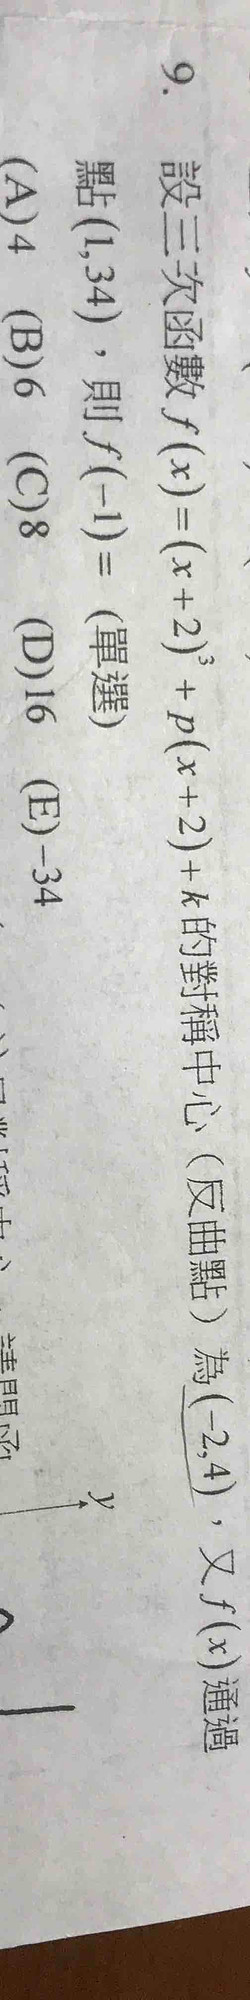 9. 設三次函數 f(x)=(x+2)³+p(x+2)+k的對稱中心（反曲點）為(-2,4)，又 f(x)通過
點(1,34)，則 f(-1)= (單選)
(A)4 (B)6 (C)8 (D)16 (E)-34
y